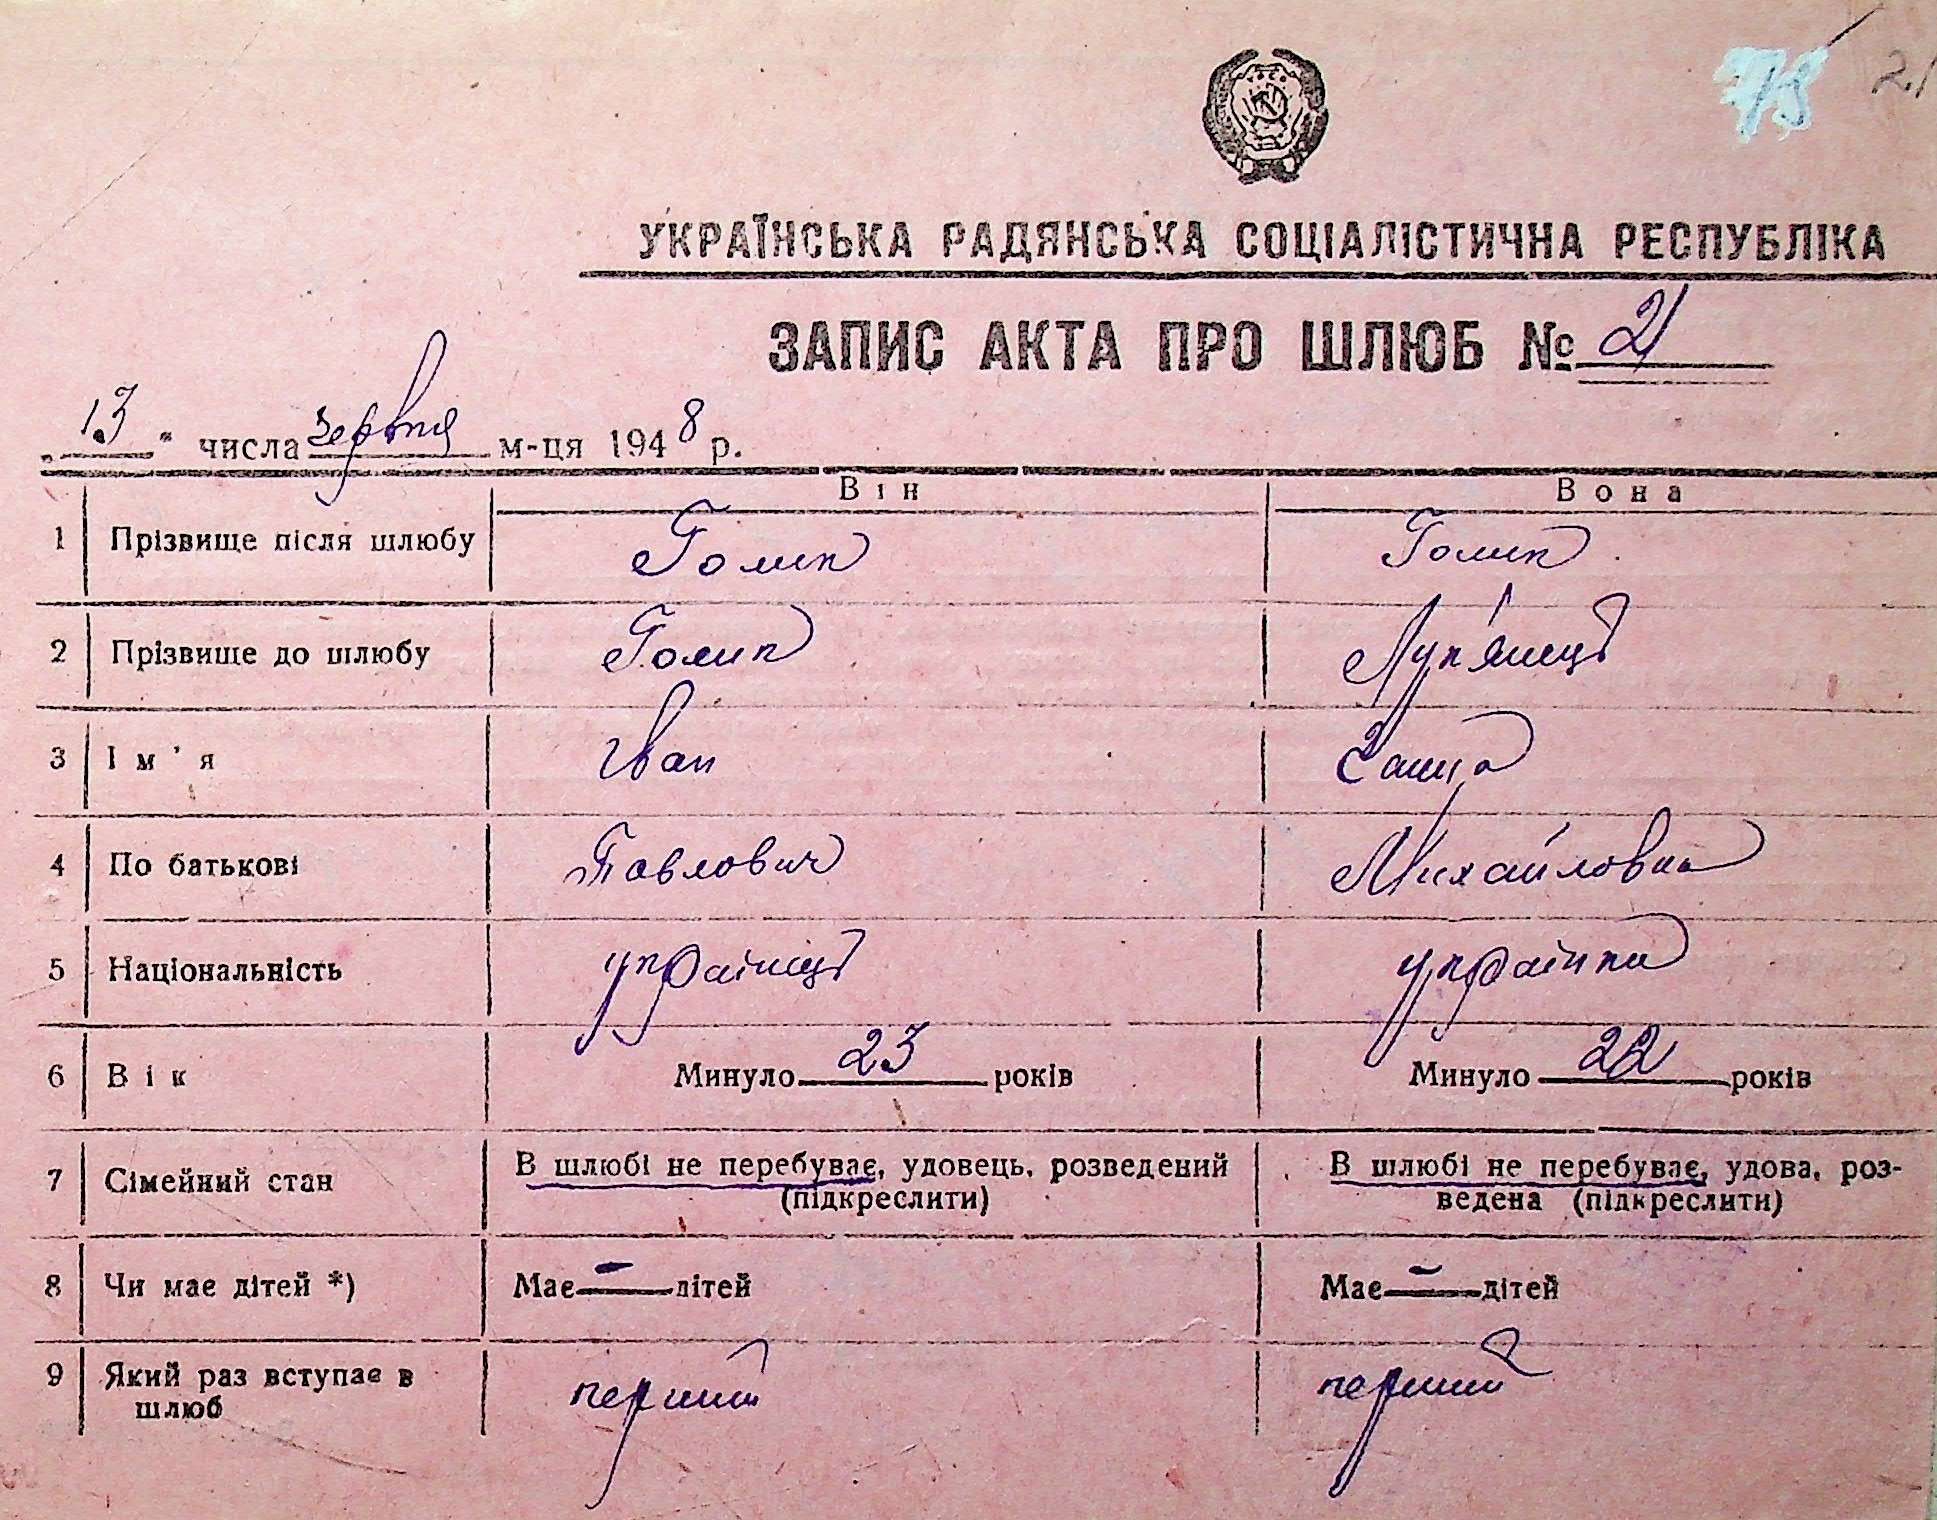 21
УКРАЇНСЬКА РАДЯНСЬКА СОЦІАЛІСТИЧНА РЕСПУБЛІКА
ЗАПИС АКТА ПРО ШЛЮБ № 21
„13“ числа червня м-ця 1948 р.
Він Вона
1 Прізвище після шлюбу Голик Голик
2 Прізвище до шлюбу Голик Луп'янець
3 Ім'я Іван Ганна
4 По батькові Павлович Михайловна
5 Національність українець українка
6 Вік Минуло 23 років Минуло 22 років
7 Сімейний стан В шлюбі не перебуває, удовець, розведений (підкреслити) В шлюбі не перебуває, удова, роз-
ведена (підкреслити)
8 Чи має дітей *) Має — дітей Має — дітей
9 Який раз вступає в шлюб перший перший